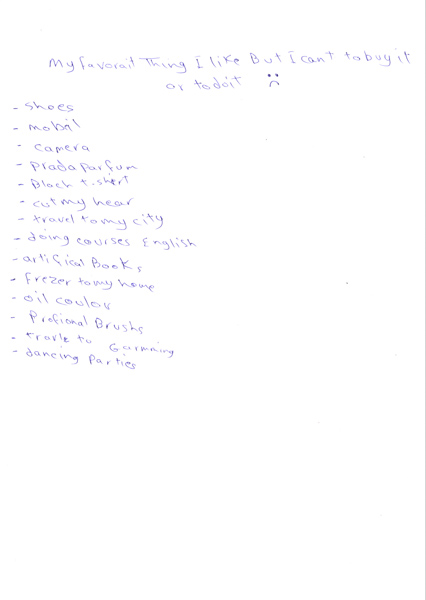 My favorait Thing I like But I can't to buy it
or todoit
- shoes
- mobil
- camera
- prada parfum
- Black t.shirt
- cut my hear
- travel to my city
- doing courses English
- artifical Books
- Frezer to my home
- oil coulor
- Profional Brushs
- travle to Garmning
- dancing parties